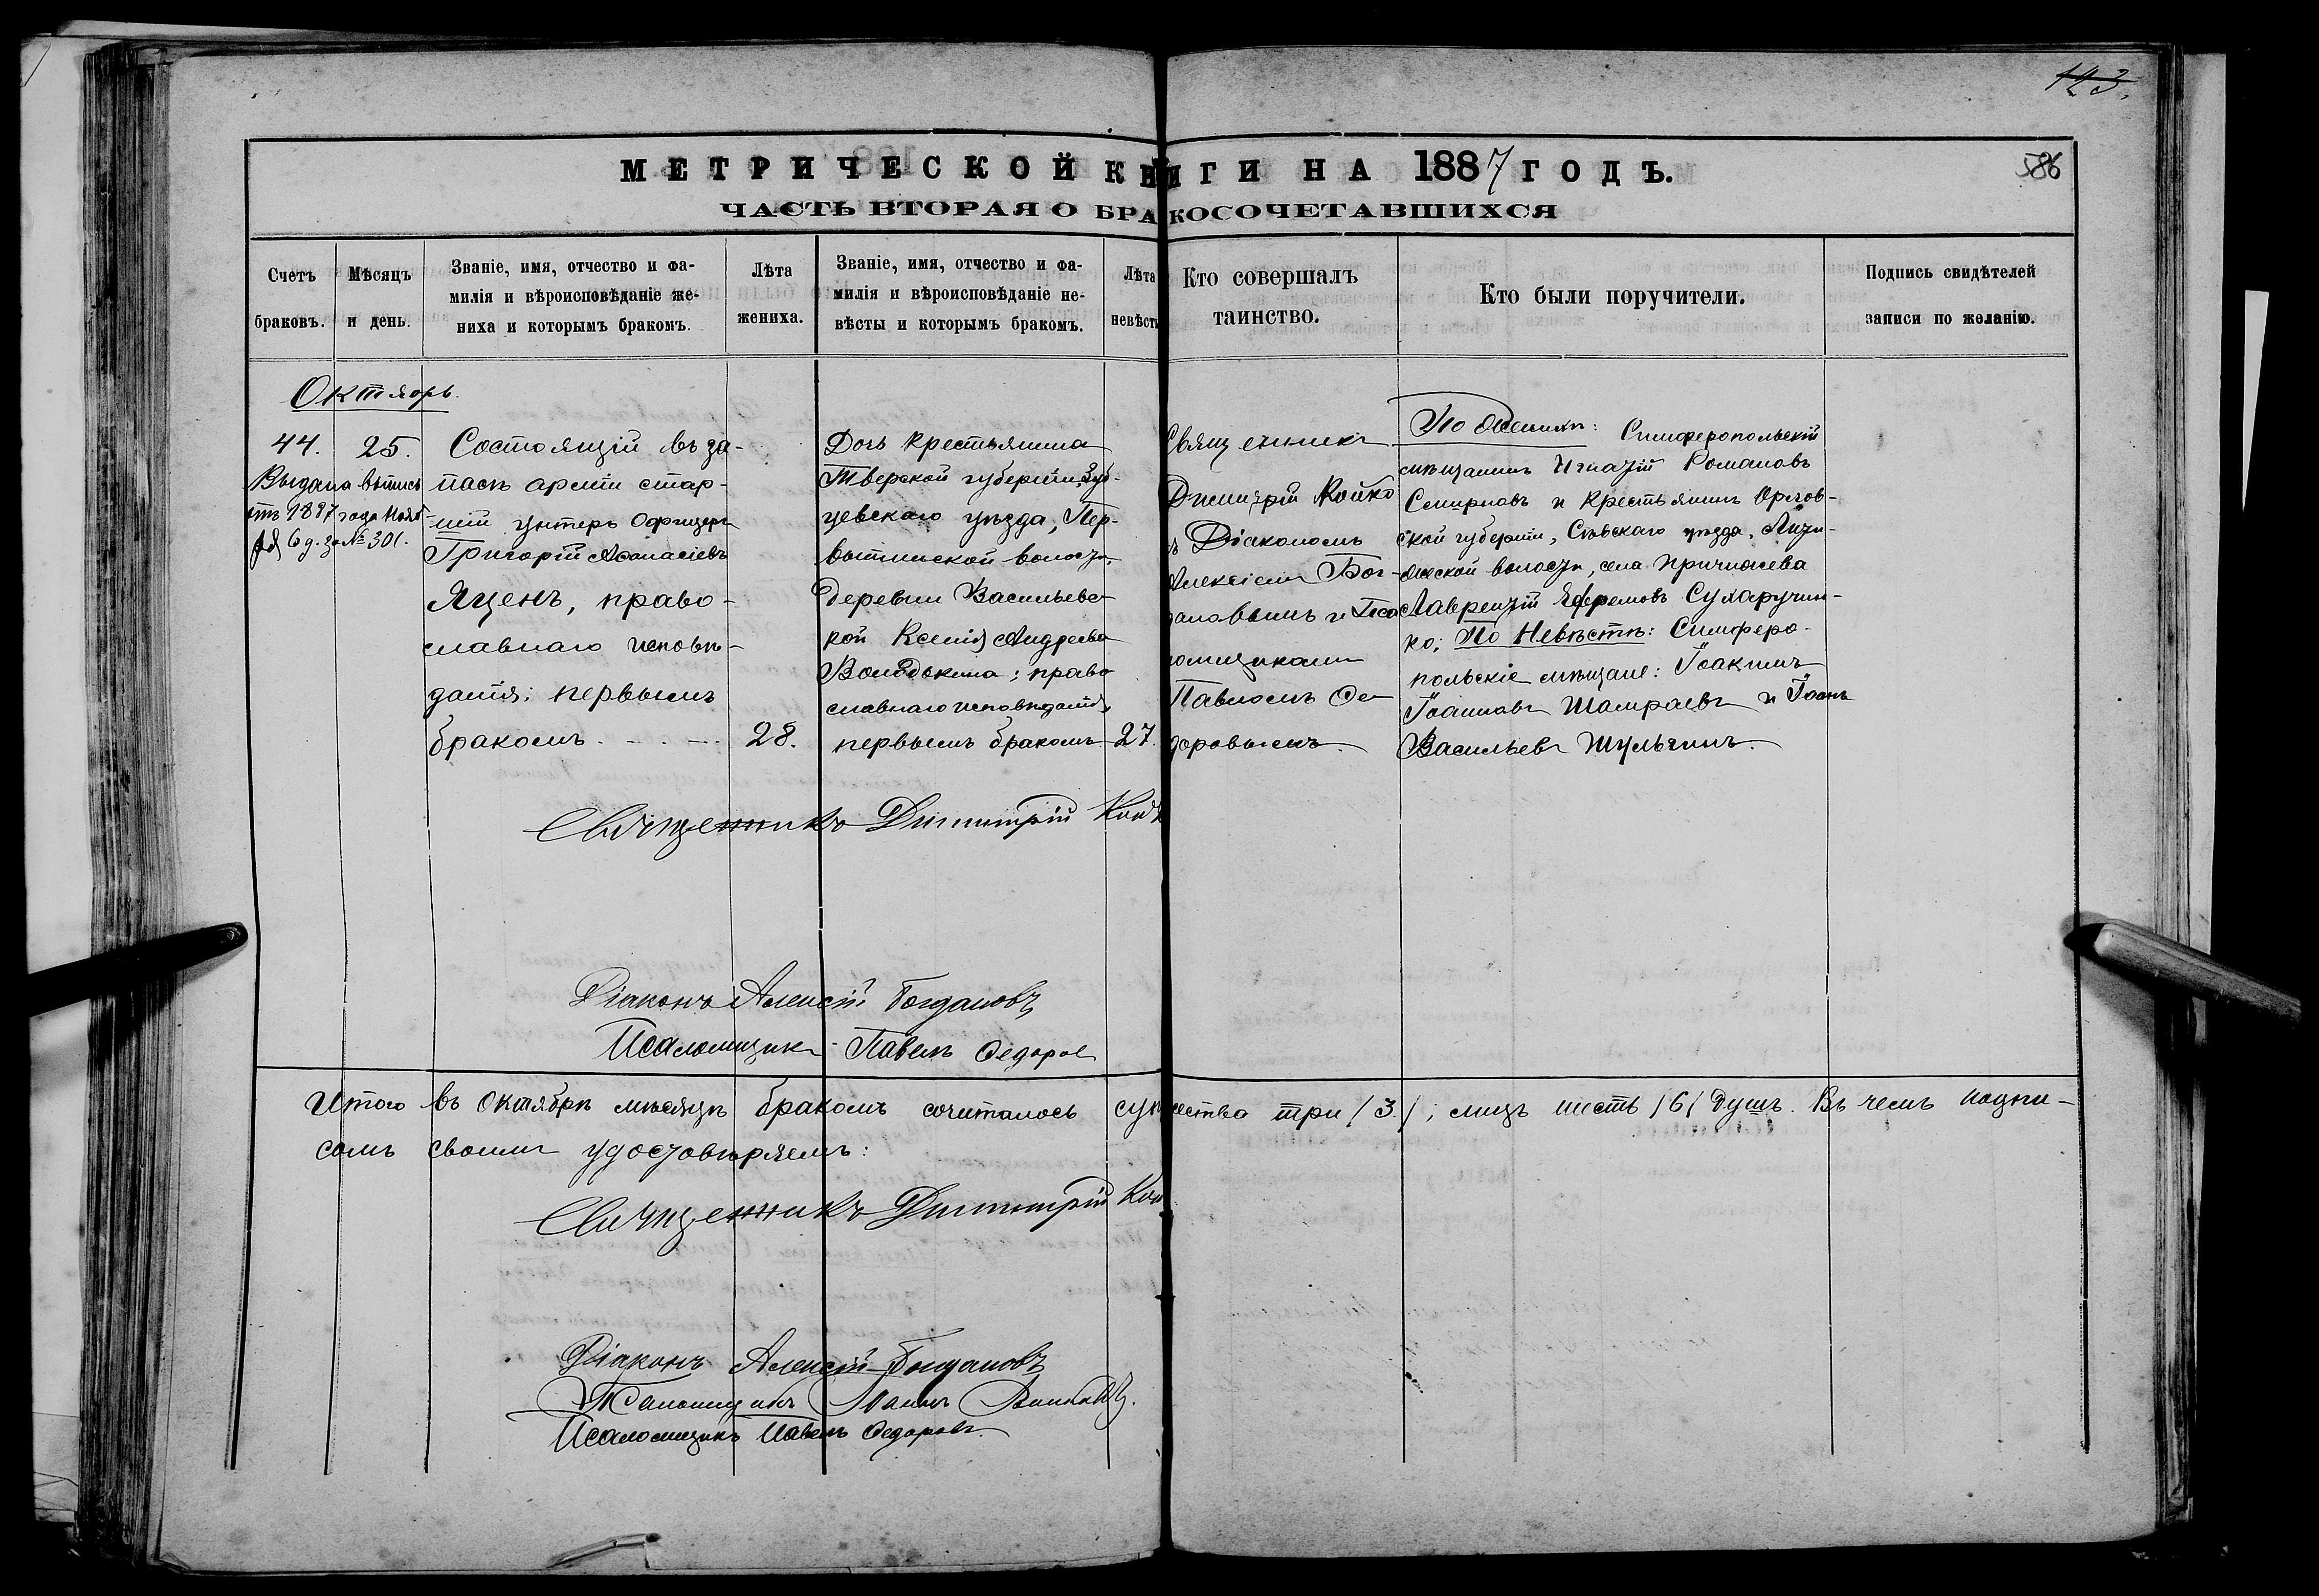 123.
МЕТРИЧЕСКОЙ КНИГИ НА 1887 ГОДЪ.
586
ЧАСТЬ ВТОРАЯ О БРАКОСОЧЕТАВШИХСЯ
Счетъ
браковъ.
Мѣсяцъ
и день.
Званіе, имя, отчество и фа-
милія и вѣроисповѣданіе же-
ниха и которымъ бракомъ.
Лѣта
жениха.
Званіе, имя, отчество и фа-
милія и вѣроисповѣданіе не-
вѣсты и которымъ бракомъ.
Лѣта
невѣсты
Кто совершалъ
таинство.
Кто были поручители.
Подпись свидѣтелей
записи по желанію.
Октябрь.
44.
25.
Выдана выпись
1897 года Нояб
6 д. за № 301.
Состоящій въ за-
пасѣ арміи стар-
шій унтеръ офицеръ
Григорій Аѳанасіевъ
Яценъ, право-
славнаго исповѣ-
данія; первымъ
бракомъ.
28.
Дочь крестьянина
Тверской губерніи, Зуб-
цевскаго уѣзда,
волости,
деревни Васильевс-
кой Ксенія Андреева
Володькина; право
славнаго исповѣданія,
первымъ бракомъ.
27.
Священникъ
Димитрій Койко
съ Діакономъ
Алексіемъ Бог-
дановымъ и Пса
ломщикомъ
Павломъ Ѳе
доровымъ.
По Женихѣ: Симферопольскій
мѣщанинъ Игнатій Романовъ
Смирновъ и крестьянинъ Орлов-
ской губерніи, Сѣвскаго уѣзда,
волости, села Причижева
Лаврентій Ефремовъ Сухаручен-
ко; По Невѣстѣ: Симферо-
польскіе мѣщане: Іоакимъ
Іоанновъ Шамраевъ и Іоанъ
Васильевъ Шульгинъ.
Священникъ Димитрій Кой
Діаконъ Алексій Богдановъ
Псаломщикъ Павелъ Ѳедоров
Итого въ Октябрѣ мѣсяцѣ бракомъ сочеталось супружества три /3/; лицъ шесть /6/ душъ. Въ чемъ подпи-
сомъ своимъ удостовѣряемъ:
Священникъ Димитрій Кой
Діаконъ Алексій Богдановъ
Псаломщикъ Іоаннъ
Псаломщикъ Павелъ Ѳедоровъ